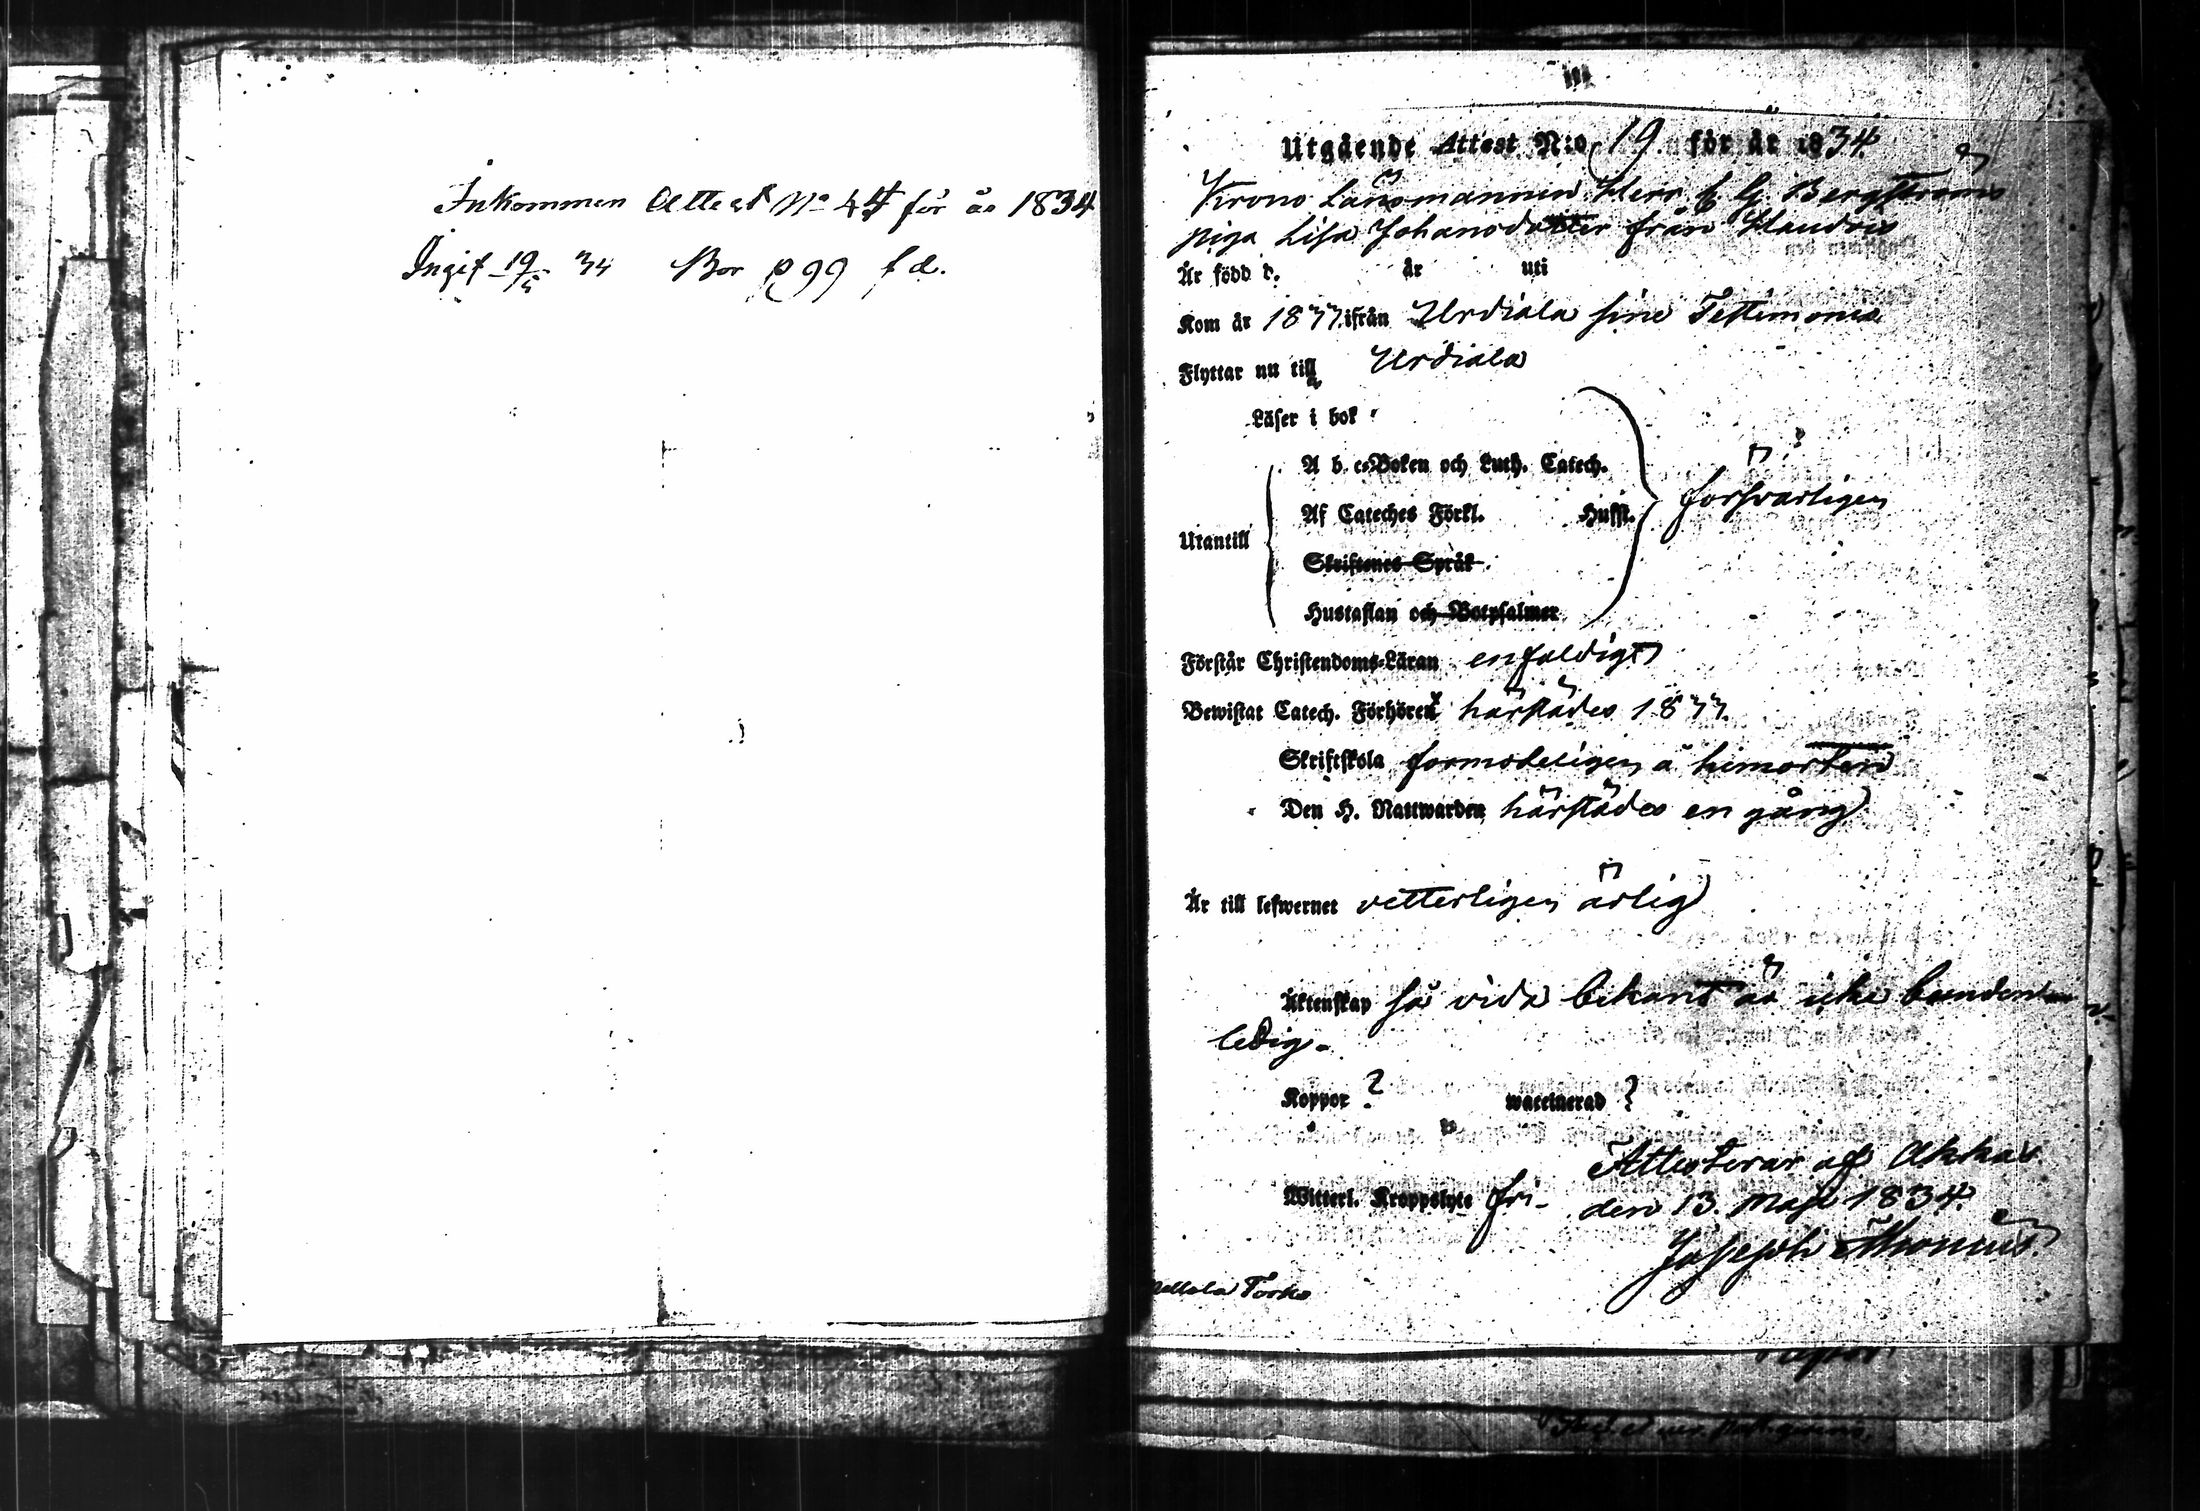 Inkommen Attest No 44 för år 1834
Ingif 19/5 34 Bor p 99 f d.
Utgående Attest N:o 19. för år 1834
Krono Länsmannen Herr C G Bergströms
piga Lisa Johansdotter från
Är född d. år uti
Kom år 1833. ifrån Urdiala sine Testimonio
Flyttar nu till Urdiala
Läser i bok
A b c-Boken och Luth. Catech.
Af Cateches Förkl. Husst. försvarligen
Utantill
Skriftenes Språk
Hustaflan och Botpsalmer
Förstår Christendoms-Läran enfaldigt
Bewistat Catech. Förhören härstädes 1833.
Skriftskola förmodeligen å hemorten
Den H. Nattwarden härstädes en gång
Är till lefwernet vetterligen ärlig
Äktenskap så vida bekant är icke bunden
ledig.
Koppor ? waccinerad ?
Attesterar af Akkas
Witterl. Kroppslyte fri- den 13. Maji 1834.
Joseph